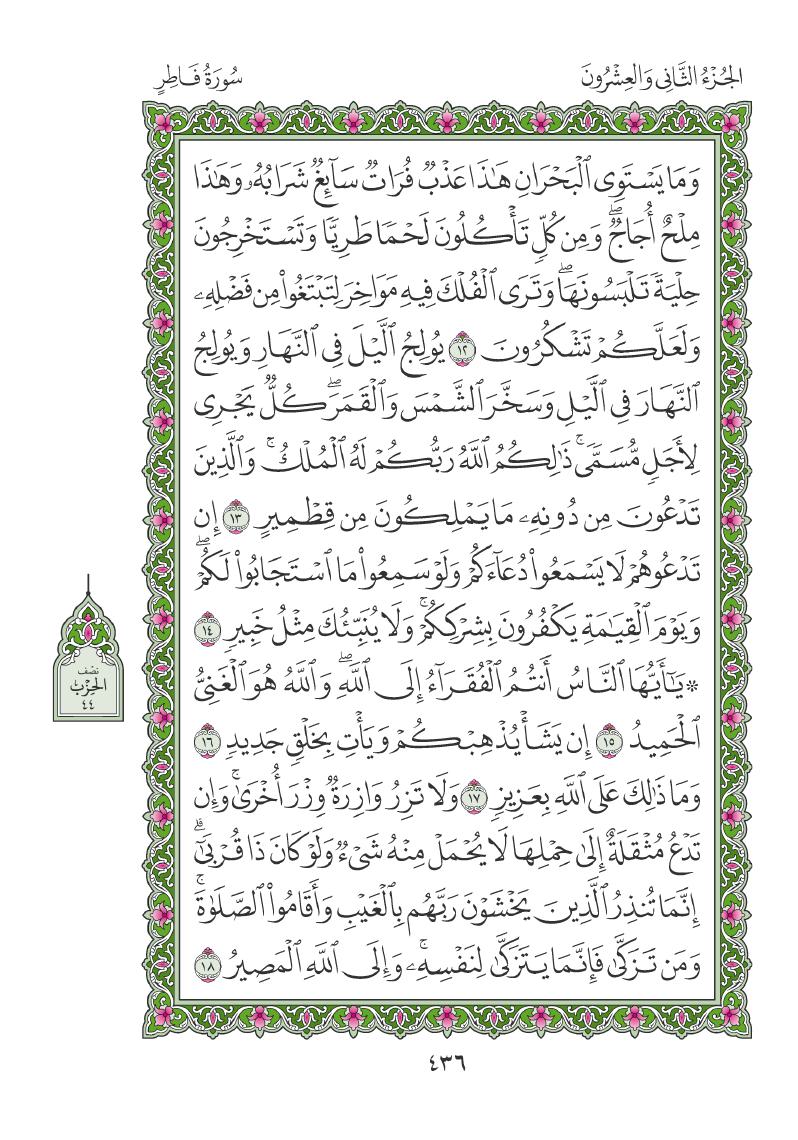 الجُزْءُ الثَّانِي وَالْعِشْرُونَ
سُورَةُ فَاطِرٍ
وَمَا يَسْتَوِى ٱلْبَحْرَانِ هَٰذَا عَذْبٌ فُرَاتٌ سَآئِغٌ شَرَابُهُۥ وَهَٰذَا
مِلْحٌ أُجَاجٌ ۖ وَمِن كُلٍّ تَأْكُلُونَ لَحْمًا طَرِيًّا وَتَسْتَخْرِجُونَ
حِلْيَةً تَلْبَسُونَهَا ۖ وَتَرَى ٱلْفُلْكَ فِيهِ مَوَاخِرَ لِتَبْتَغُوا۟ مِن فَضْلِهِۦ
وَلَعَلَّكُمْ تَشْكُرُونَ ١٢ يُولِجُ ٱلَّيْلَ فِى ٱلنَّهَارِ وَيُولِجُ
ٱلنَّهَارَ فِى ٱلَّيْلِ وَسَخَّرَ ٱلشَّمْسَ وَٱلْقَمَرَ ۖ كُلٌّ يَجْرِى
لِأَجَلٍ مُّسَمًّى ۚ ذَٰلِكُمُ ٱللَّهُ رَبُّكُمْ لَهُ ٱلْمُلْكُ ۚ وَٱلَّذِينَ
تَدْعُونَ مِن دُونِهِۦ مَا يَمْلِكُونَ مِن قِطْمِيرٍ ١٣ إِن
تَدْعُوهُمْ لَا يَسْمَعُوا۟ دُعَآءَكُمْ وَلَوْ سَمِعُوا۟ مَا ٱسْتَجَابُوا۟ لَكُمْ ۖ
وَيَوْمَ ٱلْقِيَٰمَةِ يَكْفُرُونَ بِشِرْكِكُمْ ۚ وَلَا يُنَبِّئُكَ مِثْلُ خَبِيرٍ ١٤
۞ يَٰٓأَيُّهَا ٱلنَّاسُ أَنتُمُ ٱلْفُقَرَآءُ إِلَى ٱللَّهِ ۖ وَٱللَّهُ هُوَ ٱلْغَنِىُّ
ٱلْحَمِيدُ ١٥ إِن يَشَأْ يُذْهِبْكُمْ وَيَأْتِ بِخَلْقٍ جَدِيدٍ ١٦
وَمَا ذَٰلِكَ عَلَى ٱللَّهِ بِعَزِيزٍ ١٧ وَلَا تَزِرُ وَازِرَةٌ وِزْرَ أُخْرَىٰ ۚ وَإِن
تَدْعُ مُثْقَلَةٌ إِلَىٰ حِمْلِهَا لَا يُحْمَلْ مِنْهُ شَىْءٌ وَلَوْ كَانَ ذَا قُرْبَىٰٓ ۗ
إِنَّمَا تُنذِرُ ٱلَّذِينَ يَخْشَوْنَ رَبَّهُم بِٱلْغَيْبِ وَأَقَامُوا۟ ٱلصَّلَوٰةَ ۚ
وَمَن تَزَكَّىٰ فَإِنَّمَا يَتَزَكَّىٰ لِنَفْسِهِۦ ۚ وَإِلَى ٱللَّهِ ٱلْمَصِيرُ ١٨
نصْف
الحِزْبُ
٤٤
٤٣٦